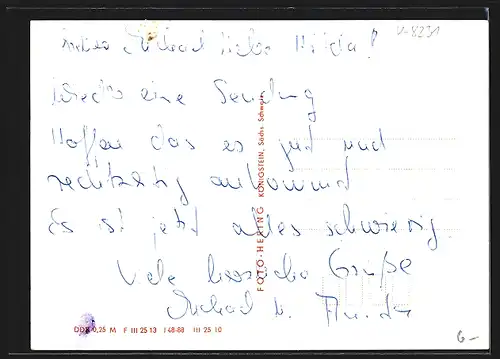 Lieber Michael liebe Hilda!
V-8231
eine Sendung
Hoffen das es gut und
rechtzeitig ankommt
Es ist jetzt alles schwierig.
Viele herzliche Grüße
Michael u.
FOTO-HERING KÖNIGSTEIN, Sächs. Schweiz
DDR 0,25 M F III 25 13 J 48-88 III 25 10
6.-